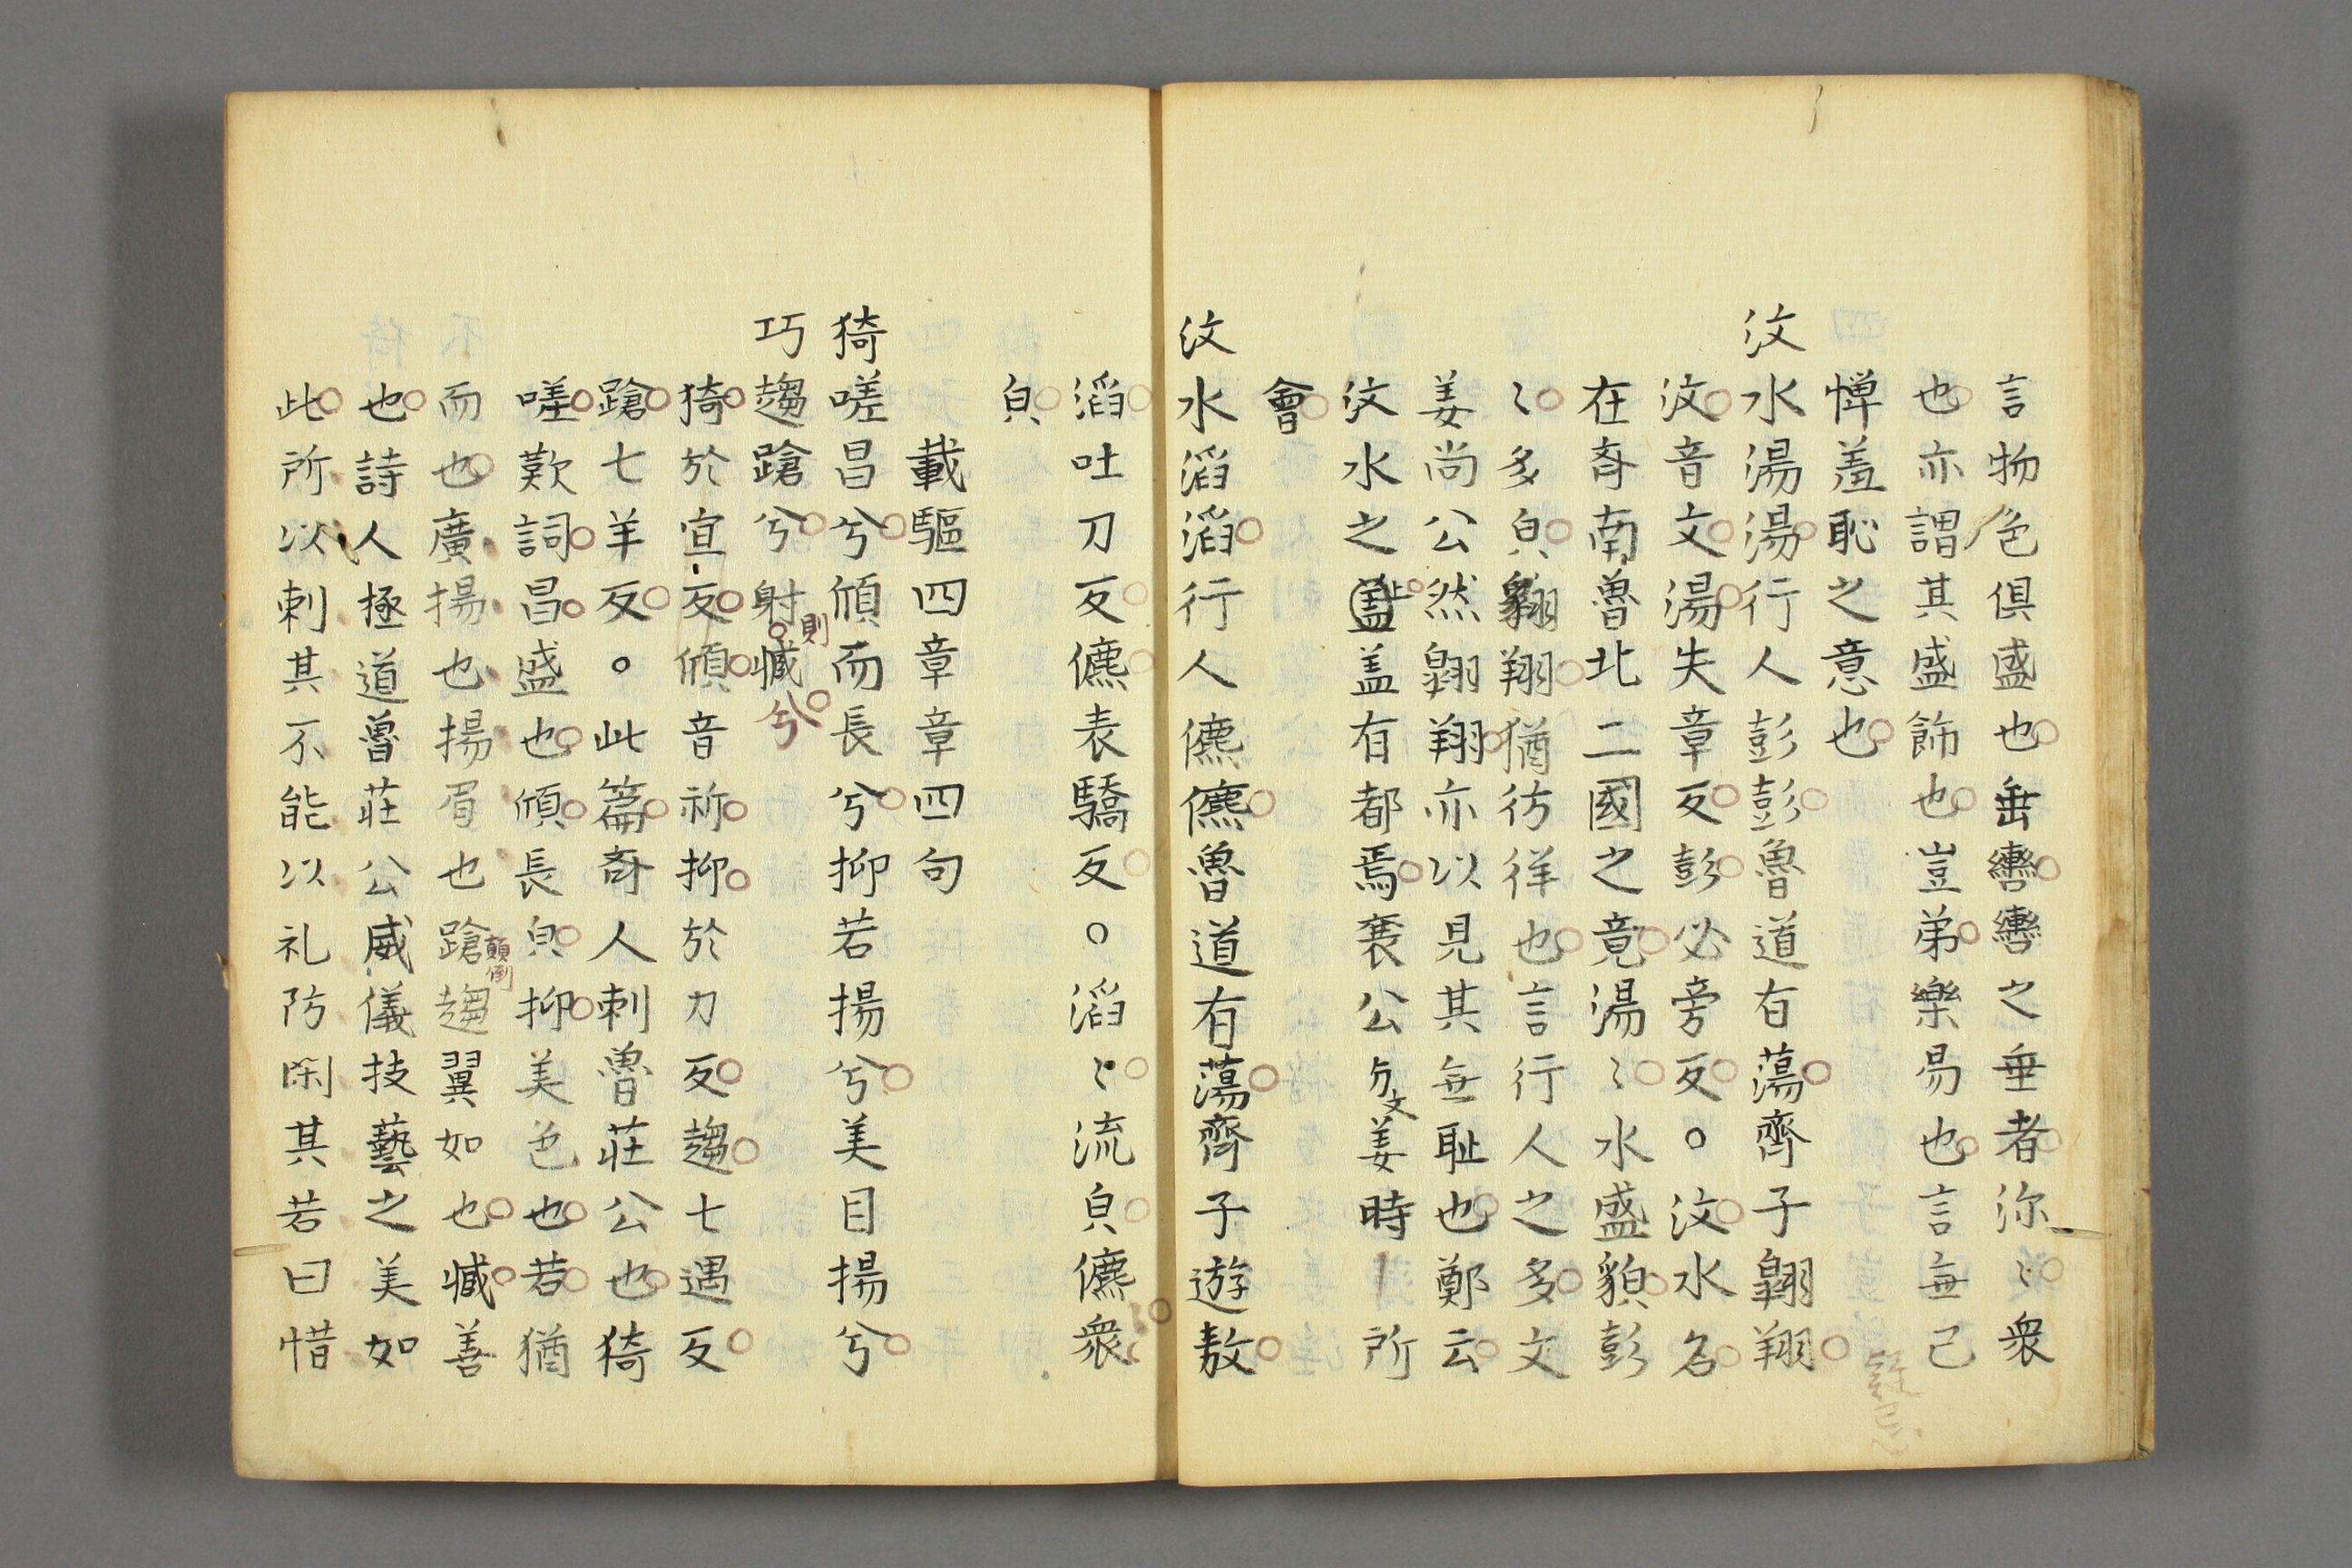 言物色俱盛也垂轡轡之垂者沵〻衆
也亦謂其盛飾也豈弟樂易也言無己
憚羞恥之意也
汶水湯湯行人彭彭魯道有蕩齊子翱翔
汶音文湯失章反彭必旁反。汶水名
在斉南魯北二國之竟湯〻水盛貌彭
〻多皃翱翔猶彷徉也言行人之多文
姜尚公然翱翔亦以見其無耻也鄭云
汶水之上盖有都焉襄公与文姜時所
會
汶水滔滔行人儦儦魯道有蕩齊子遊敖
滔吐刀反儦表驕反。滔〻流皃儦衆
皃
載驅四章章四句
猗嗟昌兮頎而長兮抑若揚兮美目揚兮
巧趨蹌兮射則臧兮
猗於宜反頎音祈抑於力反趨七遇反
蹌七羊反。此篇斉人刺魯莊公也猗
嗟歎詞昌盛也頎長皃抑美色也若猶
而也廣揚也揚眉也蹌趨翼如也臧善
顛倒
也詩人極道魯莊公威儀技藝之美如
此所以刺其不能以礼防閑其若曰惜